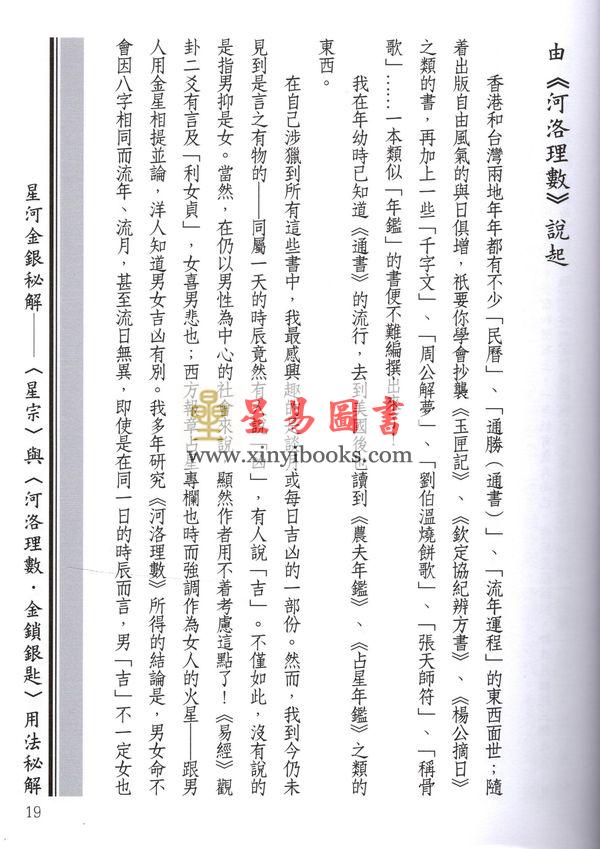 由《河洛理數》說起
香港和台灣兩地年年都有不少「民曆」、「通勝（通書）」、「流年運程」的東西面世；隨
着出版自由風氣的與日俱增，祇要你學會抄襲《玉匣記》、《欽定協紀辨方書》、《楊公摘日》
之類的書，再加上一些「千字文」、「周公解夢」、「劉伯溫燒餅歌」、「張天師符」、「稱骨
歌」……一本類似「年鑑」的書便不難編撰出
我在年幼時已知道《通書》的流行，去到美國後也讀到《農夫年鑑》、《占星年鑑》之類的
東西。
在自己涉獵到所有這些書中，我最感興趣的是談月或每日吉凶的一部份。然而，我到今仍未
見到是言之有物的——同屬一天的時辰竟然有人說「凶」，有人說「吉」。不僅如此，沒有說的
是指男抑是女。當然，在仍以男性為中心的社會來說，顯然作者用不着考慮這點了！《易經》觀
卦二爻有言及「利女貞」，女喜男悲也；西方報章占星專欄也時而強調作為女人的火星——跟男
人用金星相提並論，洋人知道男女吉凶有別。我多年研究《河洛理數》所得的結論是，男女命不
會因八字相同而流年、流月，甚至流日無異，即使是在同一日的時辰而言，男「吉」不一定女也
星河金銀秘解——〈星宗〉與〈河洛理數．金鎖銀匙〉用法秘解
19
星易圖書
www.xinyibooks.com